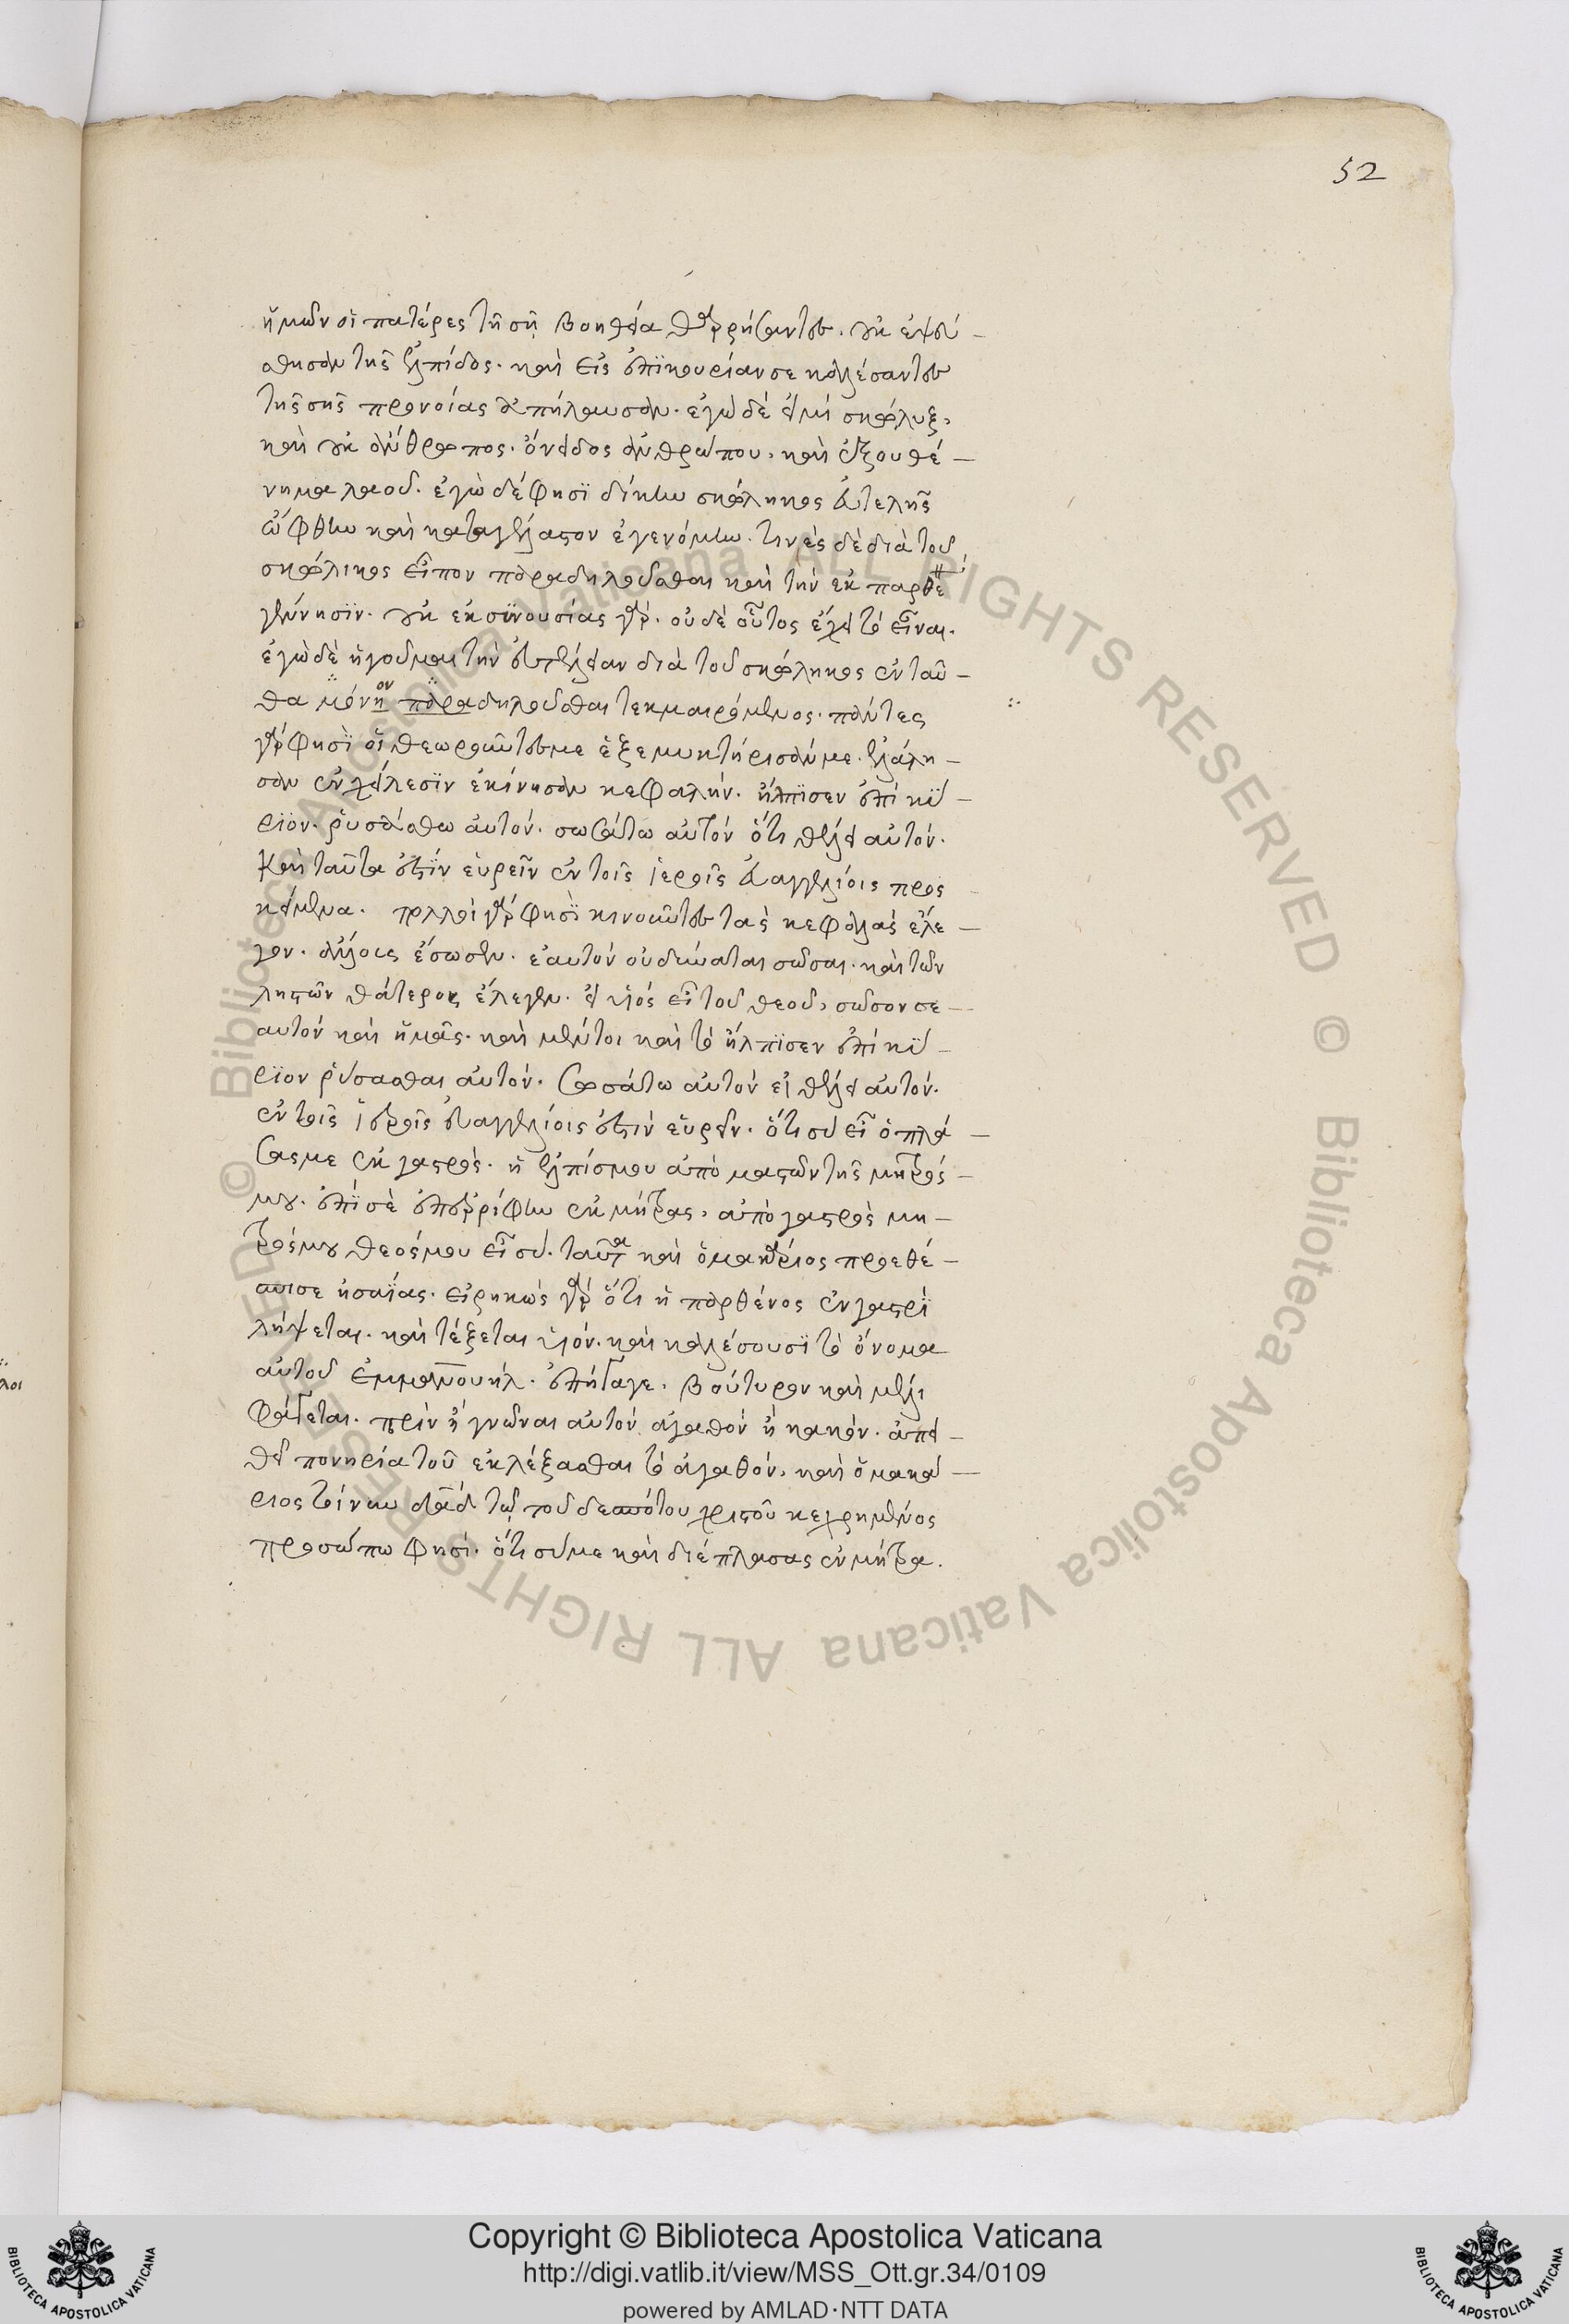 52
ἡμῶν οἱ πατέρες τῆ σῆ βοηθεία θαρρήσαντες. οὐκ ἐψεύ-
σθησαν τῆς ἐλπίδος. καὶ εἰς ἐπικουρίαν σε καλέσαντες
τῆς σῆς προνοίας ἀπήλαυσαν. ἐγὼ δέ εἰμι σκώληξ,
καὶ οὐκ ἄνθρωπος. ὄνειδος ἀνθρώπου, καὶ ἐξουθέ-
νημα λαοῦ. ἐγὼ δέ φησι δίκην σκώληκος εὐτελὴς
ὤφθην καὶ καταγέλαστον ἐγενόμην. τινὲς δὲ διὰ τοῦ
σκώληκος εἶπον παραδηλοῦσθαι καὶ τὴν ἐκ παρθέ
γέννησιν. οὐκ ἐκ συνουσίας γάρ. οὐδὲ οὗτος ἔχει τὸ εἶναι.
ἐγὼ δὲ ἡγοῦμαι τὴν εὐτέλειαν διὰ τοῦ σκώληκος ἐνταῦ-
θα μόνη ον παραδηλοῦσθαι τεκμαιρόμενος. πάντες
γάρ φησὶ οἱ θεωροῦντες με ἐξεμυκτήρισάν με. ἐλάλη-
σαν ἐν χείλεσιν ἐκίνησαν κεφαλήν. ἤλπισεν ἐπὶ κύ-
ριον. ῥυσάσθω αὐτόν. σωσάτω αὐτόν ὅτι θέλει αὐτόν.
καὶ ταῦτα ἐστίν εὑρεῖν ἐν τοῖς ἱεροῖς εὐαγγελίοις προς
κείμενα. πολλοὶ γάρ φησὶ κινοῦντες τὰς κεφαλὰς ἔλε-
γον. ἄλλους ἔσωσεν. ἑαυτόν οὐ δύναται σῶσαι. καὶ τῶν
ληστῶν θάτερος ἔλεγεν. εἰ υἱός εἶ τοῦ θεοῦ, σῶσον σε-
αυτόν καὶ ἡμᾶς. καὶ μέντοι καὶ τὸ ἤλπισεν ἐπὶ κύ-
ριον ῥύσασθαι αὐτόν. σωσάτω αὐτόν εἰ θέλει αὐτόν.
ἐν τοῖς ἱεροῖς εὐαγγελίοις ἐστὶν εὑρεῖν. ὅτι σὺ εἶ ὁ πλά-
σας με ἐκ γαστρός. ἡ ἐλπίς μου ἀπὸ μαστῶν τῆς μητρός-
μου. ἐπὶ σὲ ἐπερρίφην ἐκ μήτρας, ἀπὸ γαστρὸς μη-
τρός μου θεός μου εἶ σύ. ταῦτα καὶ ὁ μακάριος προεθέ-
σπισε ἡσαΐας. εἰρηκὼς γὰρ ὅτι ἡ παρθένος ἐν γαστρὶ
λήψεται. καὶ τέξεται υἱόν. καὶ καλέσουσι τὸ ὄνομα
αὐτοῦ ἐμμανουήλ. ἐπήγαγε. βούτυρον καὶ μέλι
φάγεται. πρὶν ἢ γνῶναι αὐτόν ἀγαθόν ἢ κακόν. ἀπει-
θεῖ πονηρία τοῦ ἐκλέξασθαι τὸ ἀγαθόν. καὶ ὁ μακά-
ριος τοίνυν δαδ τῶ τοῦ δεσπότου χριστοῦ κεχρημένος
προσώπω φησὶ. ὅτι σύ με καὶ διέπλασας ἐν μήτρα.
Copyright © Biblioteca Apostolica Vaticana
http://digi.vatlib.it/view/MSS_Ott.gr.34/0109
powered by AMLAD·NTT DATA